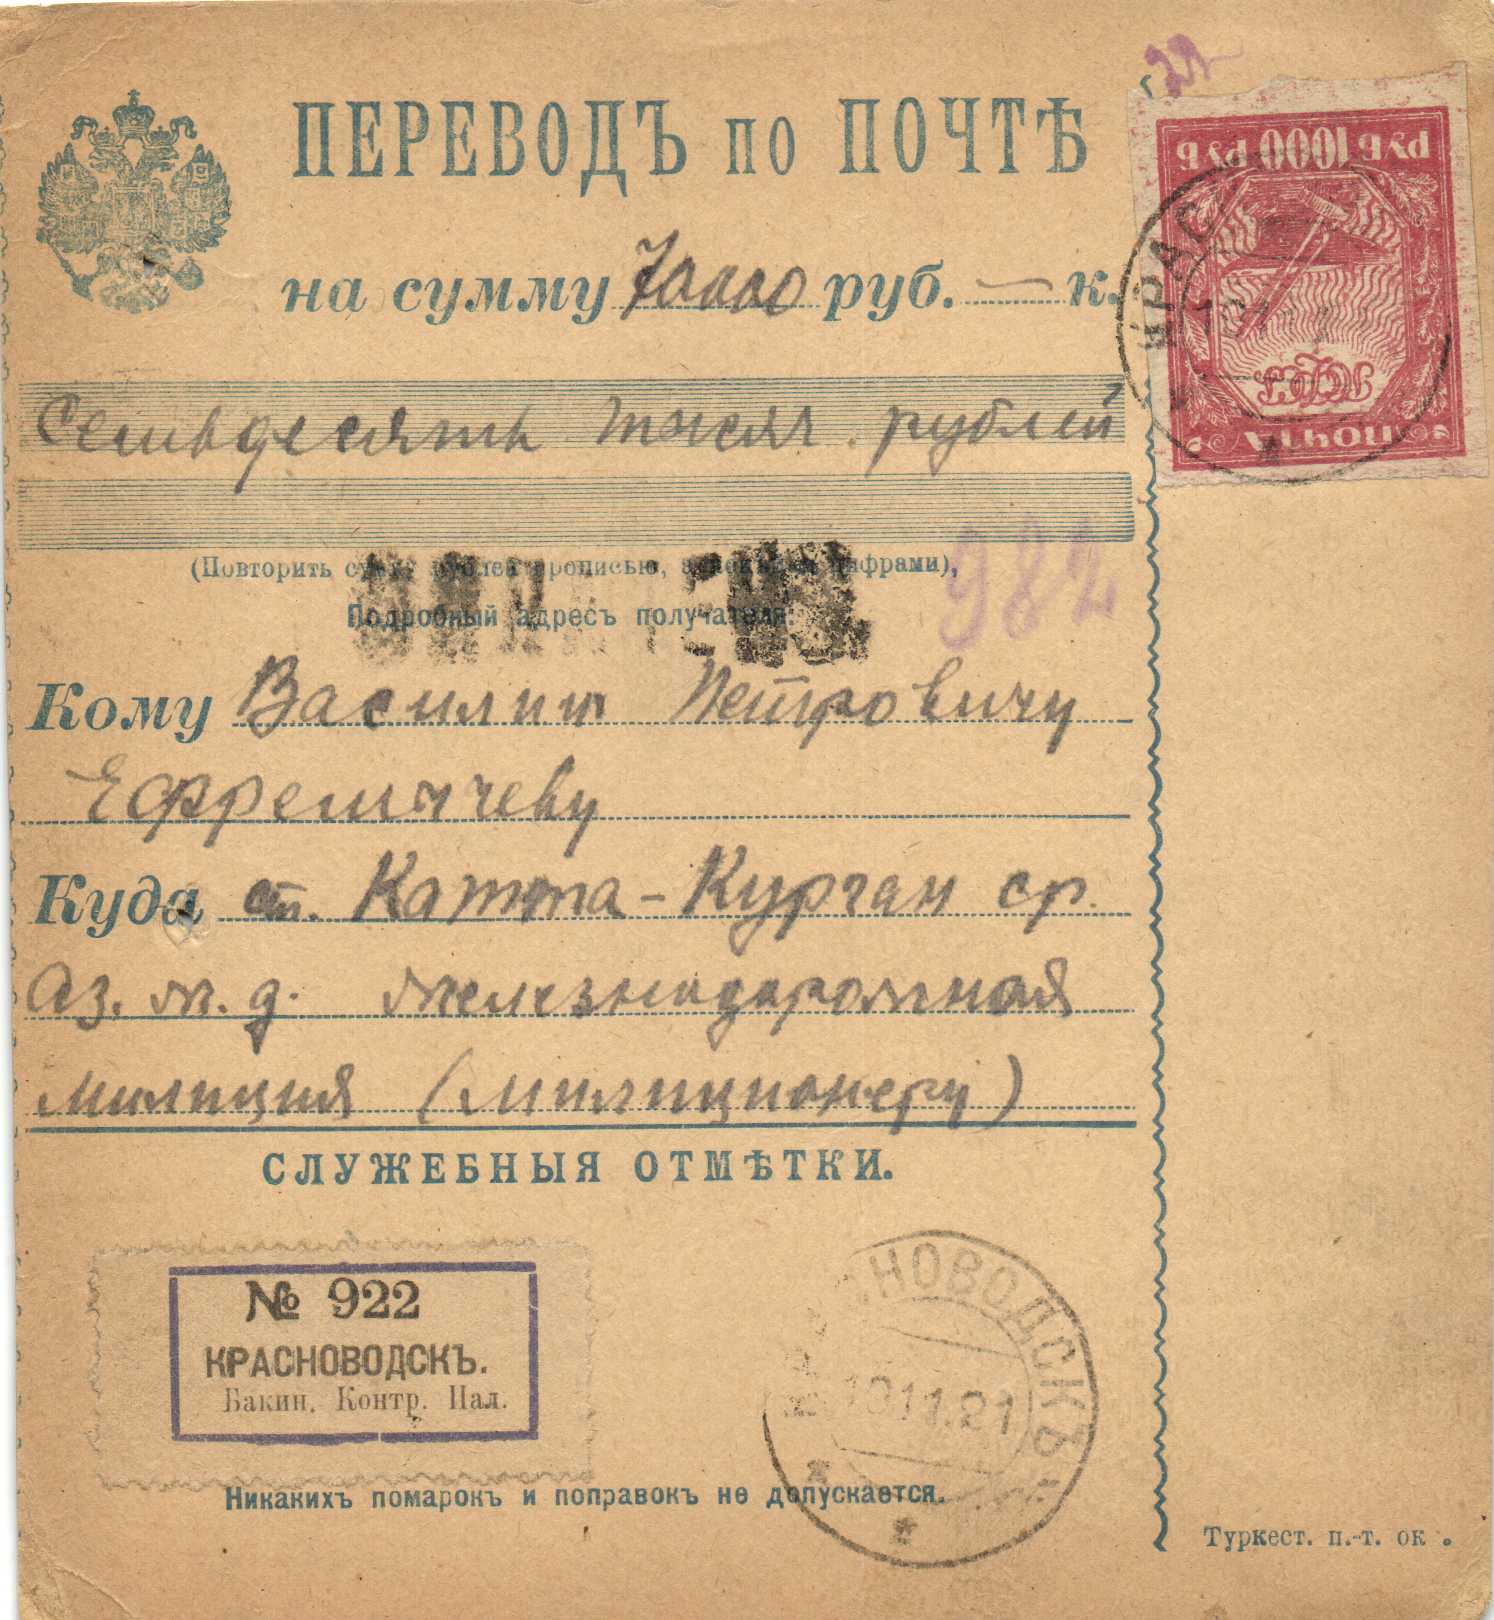 ПЕРЕВОДЪ по ПОЧТѢ
на сумму 70000 руб. — к.
Семьдесять тысяч рублей
(Повторить сумму рублей прописью, а копѣйки цифрами),
982
Подробный адресъ получателя:
Кому Василию Петровичу
Ефремычеву
Куда ст. Катта-Курган ср.
аз. ж. д. железнодорожная
милиция (милиционеру)
СЛУЖЕБНЫЯ ОТМѢТКИ.
№ 922
КРАСНОВОДСКЪ.
Бакин. Контр. Пал.
КРАСНОВОДСКЪ
10.11.21
Никакихъ помарокъ и поправокъ не допускается.
РУБ 1000 РУБ
РСФСР
ПОЧТА
КРАС
Туркест. п.-т. ок.